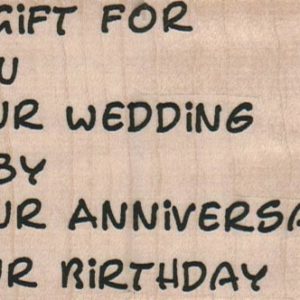 GiFT FOR
U
UR WEDDiNG
BY
UR ANNiVERSA
UR BiRTHDAY